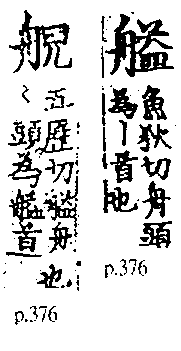 艗
魚狄切舟頭
為丨首也
p.376
五歷切艗舟也
頭為艗首
p.376